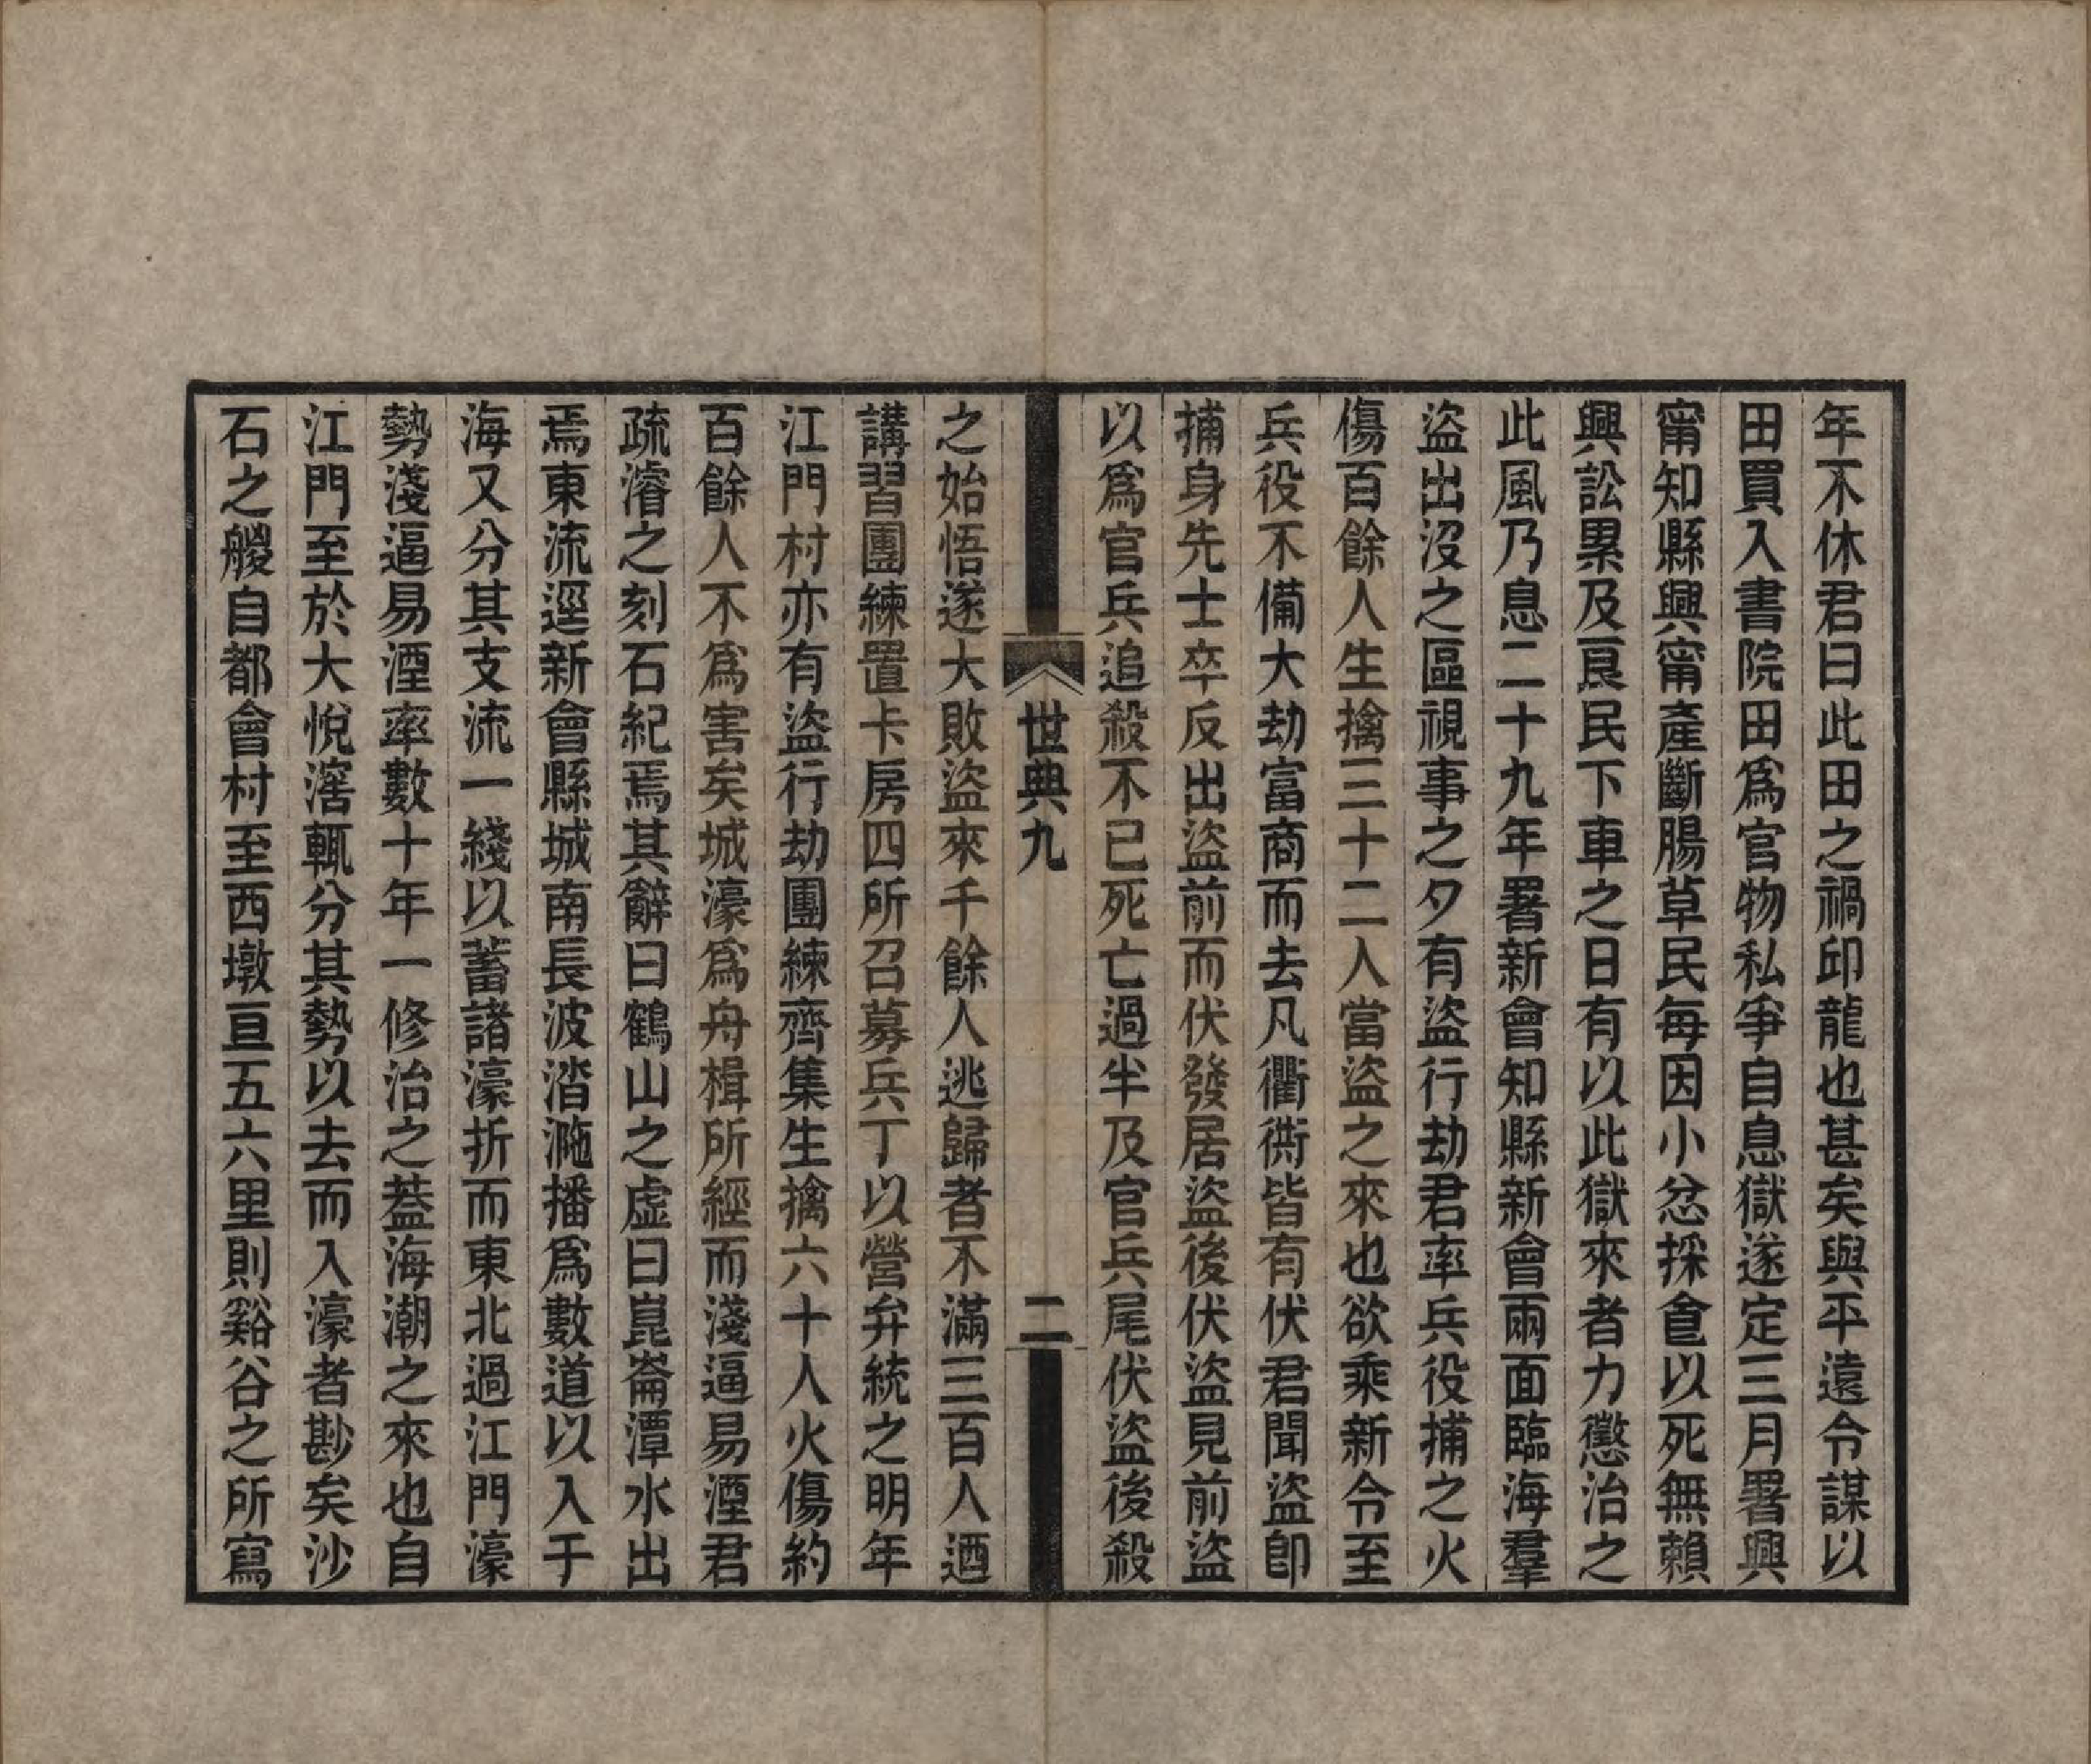 年不休君曰此田之禍邱龍也甚矣與平遠令謀以
田買入書院田爲官物私爭自息獄遂定三月署興
甯知縣興甯產斷腸草民每因小忿採食以死無賴
興訟累及良民下車之日有以此獄來者力懲治之
此風乃息二十九年署新會知縣新會兩面臨海羣
盜出沒之區視事之夕有盜行劫君率兵役捕之火
傷百餘人生擒三十二人當盜之來也欲乘新令至
兵役不備大劫富商而去凡衢衖皆有伏君聞盜卽
捕身先士卒反出盜前而伏發居盜後伏盜見前盜
以爲官兵追殺不已死亡過半及官兵尾伏盜後殺
世典九 二
之始悟遂大敗盜來千餘人逃歸者不滿三百人迺
講習團練置卡房四所召募兵丁以營弁統之明年
江門村亦有盜行劫團練齊集生擒六十人火傷約
百餘人不爲害矣城濠爲舟楫所經而淺逼易湮君
疏濬之刻石紀焉其辭曰鶴山之虛曰崑崙潭水出
焉東流逕新會縣城南長波涾湤播爲數道以入于
海又分其支流一綫以蓄諸濠折而東北過江門濠
勢淺逼易湮率數十年一修治之葢海潮之來也自
江門至於大悅滘輒分其勢以去而入濠者尠矣沙
石之艐自都會村至西墩亘五六里則谿谷之所寫